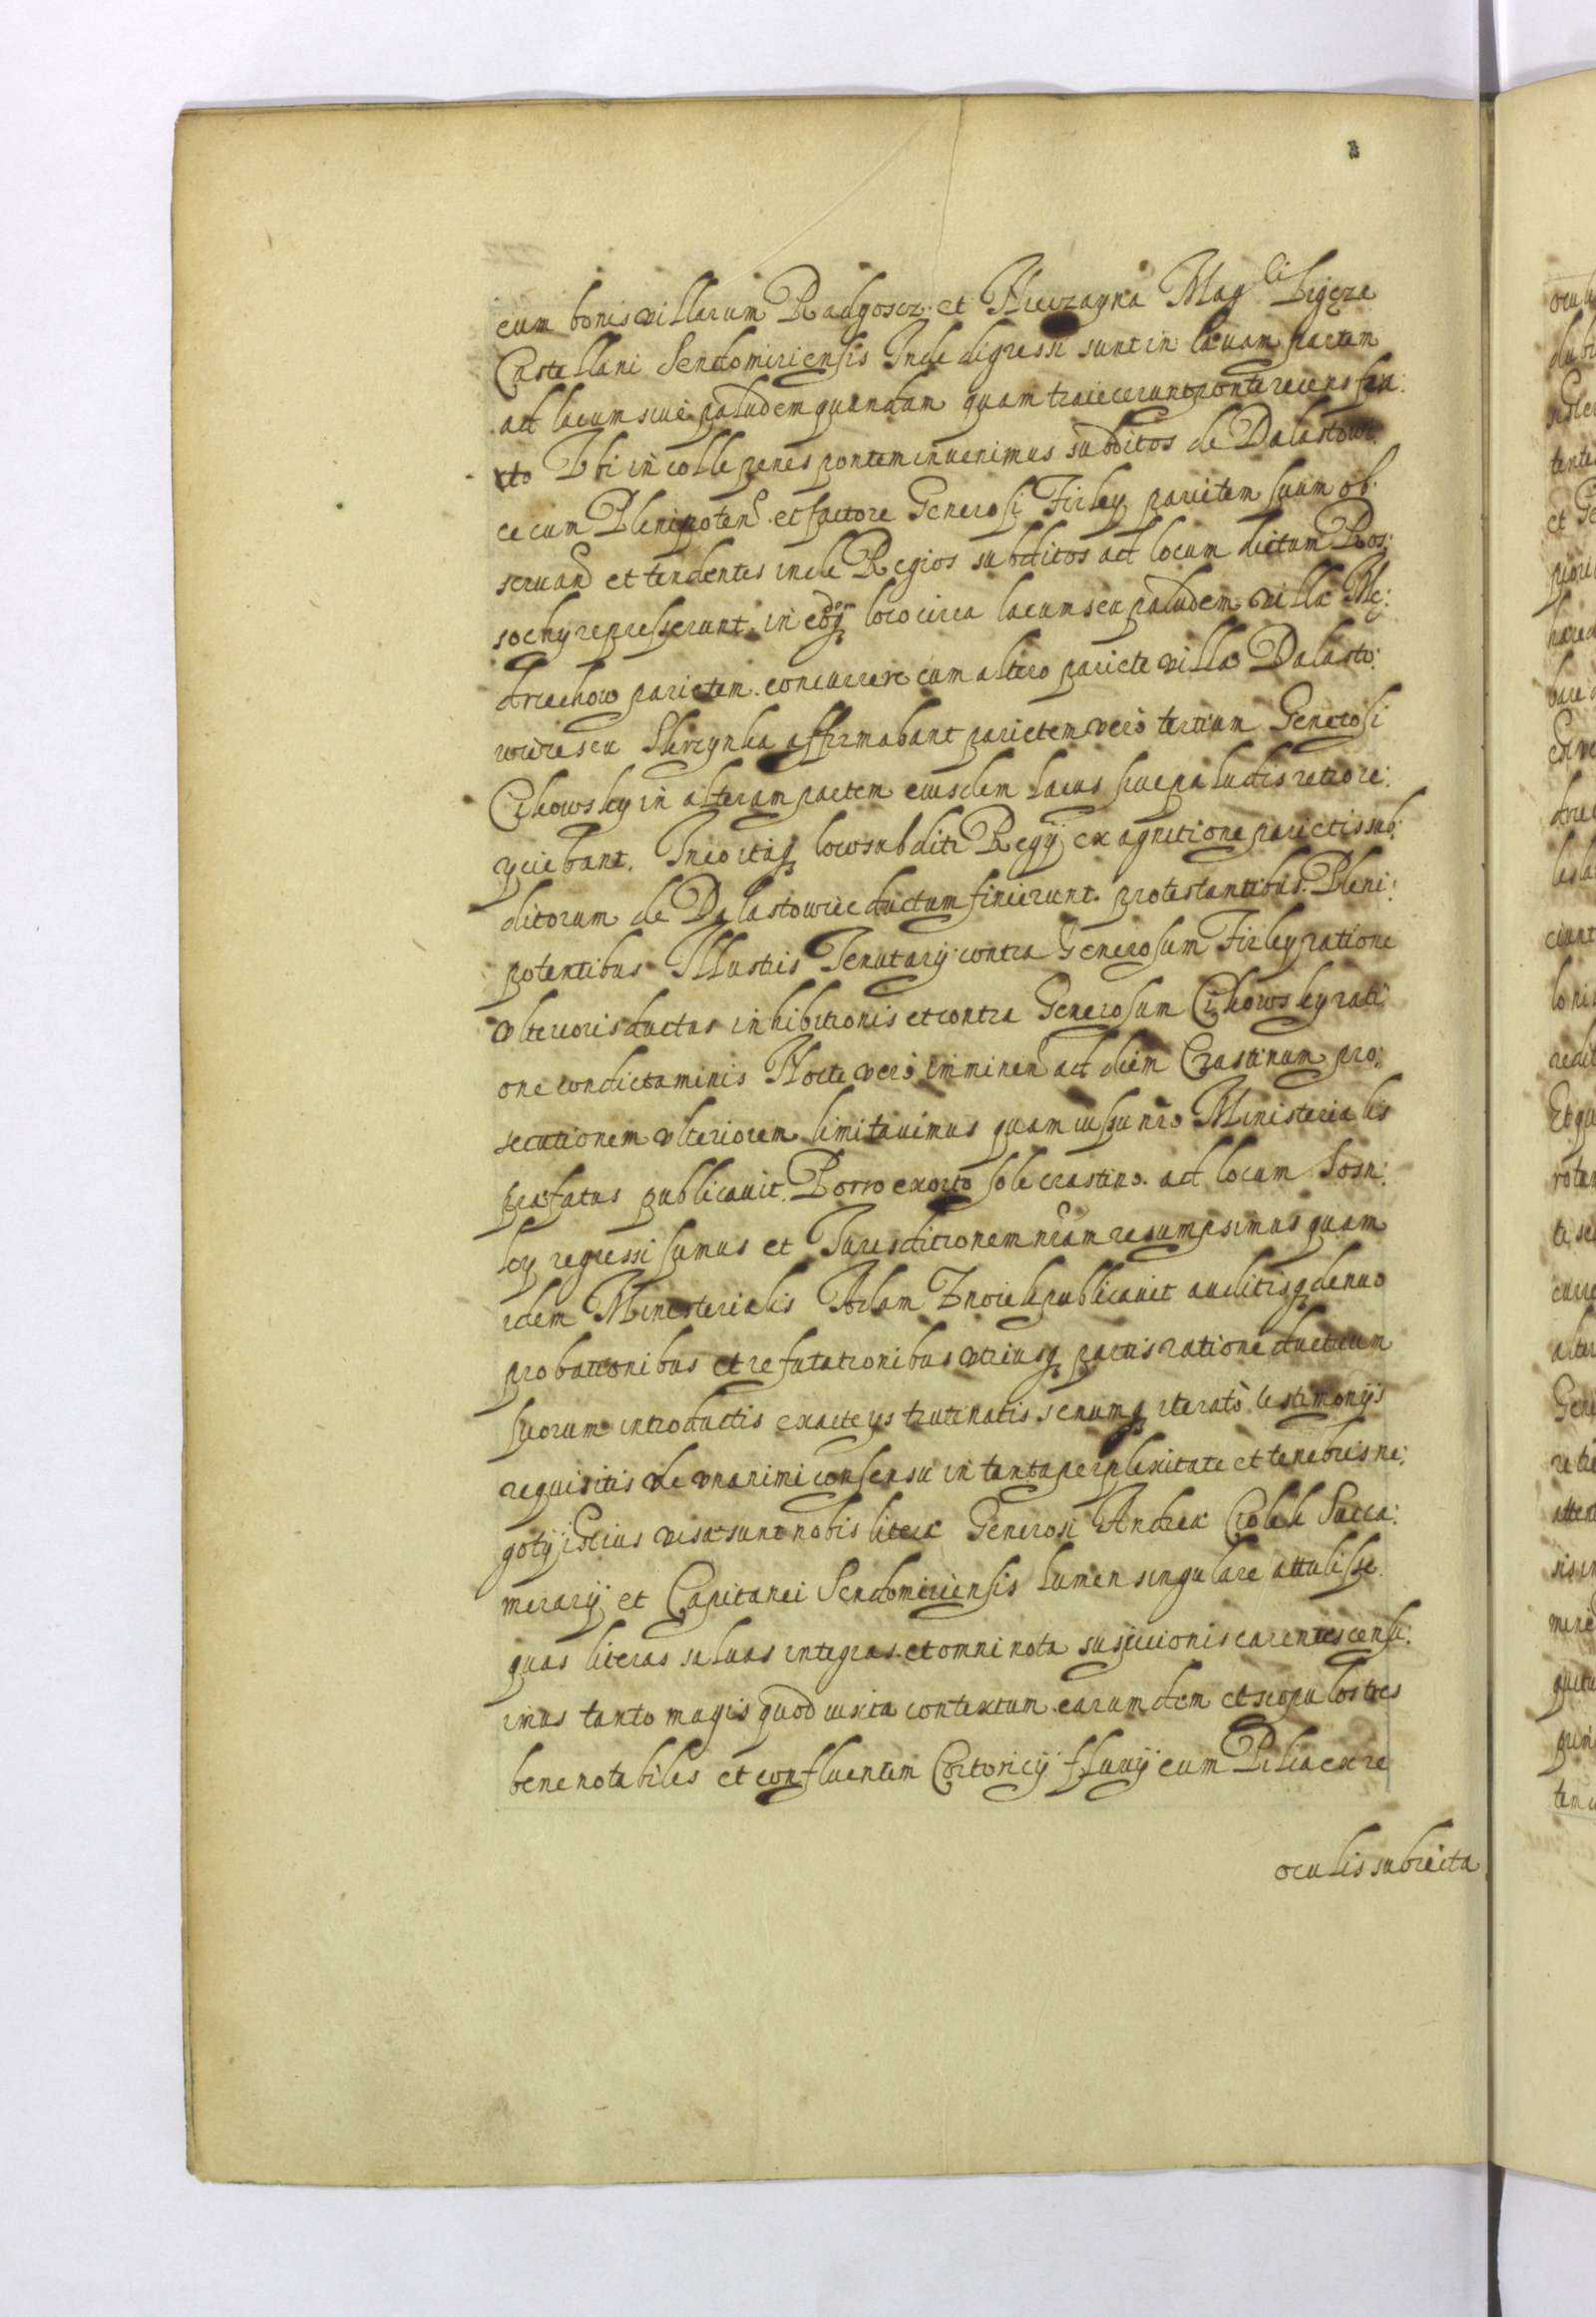 cum bonis villarum Radgoscz et Niewzayna Mag^ci Ligęza
Castellani Sendomiriensis Inde digressi sunt in lævam partem
ad lacum sive paludem quandam quam traiecerunt ponte recens stra:
cto Ibi in colle penes pontem invenimus subditos de Dalastowi
ce cum Plenipoten et factore Generosi Firley parietem suum ob:
servan et tendentes inde Regios subditos ad locum dictum Ros:
sochy represserunt in loco circa lacum seu paludem villæ Mę:
drzechow parietem concurrere cum altero pariete villæ Dalasto:
wice seu Skrzynka affirmabant parietem verò tertium Generosi
Cikowsky in alteram partem eiusdem lacus sive paludis retro re:
yciebant. In eo itaq loco subditi Regÿ ex agnitione parietis sub:
ditorum de Dalastowice ductum finierunt protestantibus Pleni:
potentibus Illustris Tenutarÿ contra Generosum Firley ratione
ulterioris ductus inhibitionis et contra Generosum Cikowsky rati
one condictaminis Nocte verò imminen ad diem Crastinum pro:
secutionem ulteriorem limitavimus quam iussu nro Ministerialis
præfatus publicavit. Porro exorto sole crastino ad locum Sosn:
ky regressi sumus et Jurisditionem nram resumpsimus quam
idem Ministerialis Adam Znoiek publicavit auditisq denuo
probationibus et refutationibus utriusq partis ratione ductuum
suorum introductis exacte ÿs trutinatis senumq iteratò testimonÿs
requisitis de unanimi consensu in tanta perplexitate et tenebris ne:
gotÿ istius visæ sunt nobis literæ Generosi Andreæ Czolek Succa:
merarÿ et Capitanei Sendomiriensis lumen singulare attulisse
quas literas salvas integras et omni nota suspicionis carentes censu:
imus tanto magis quod iuxta contextum earumdem et scopulos tres
bene notabiles et confluentem fluvÿ cum ex re
oculis subiecta